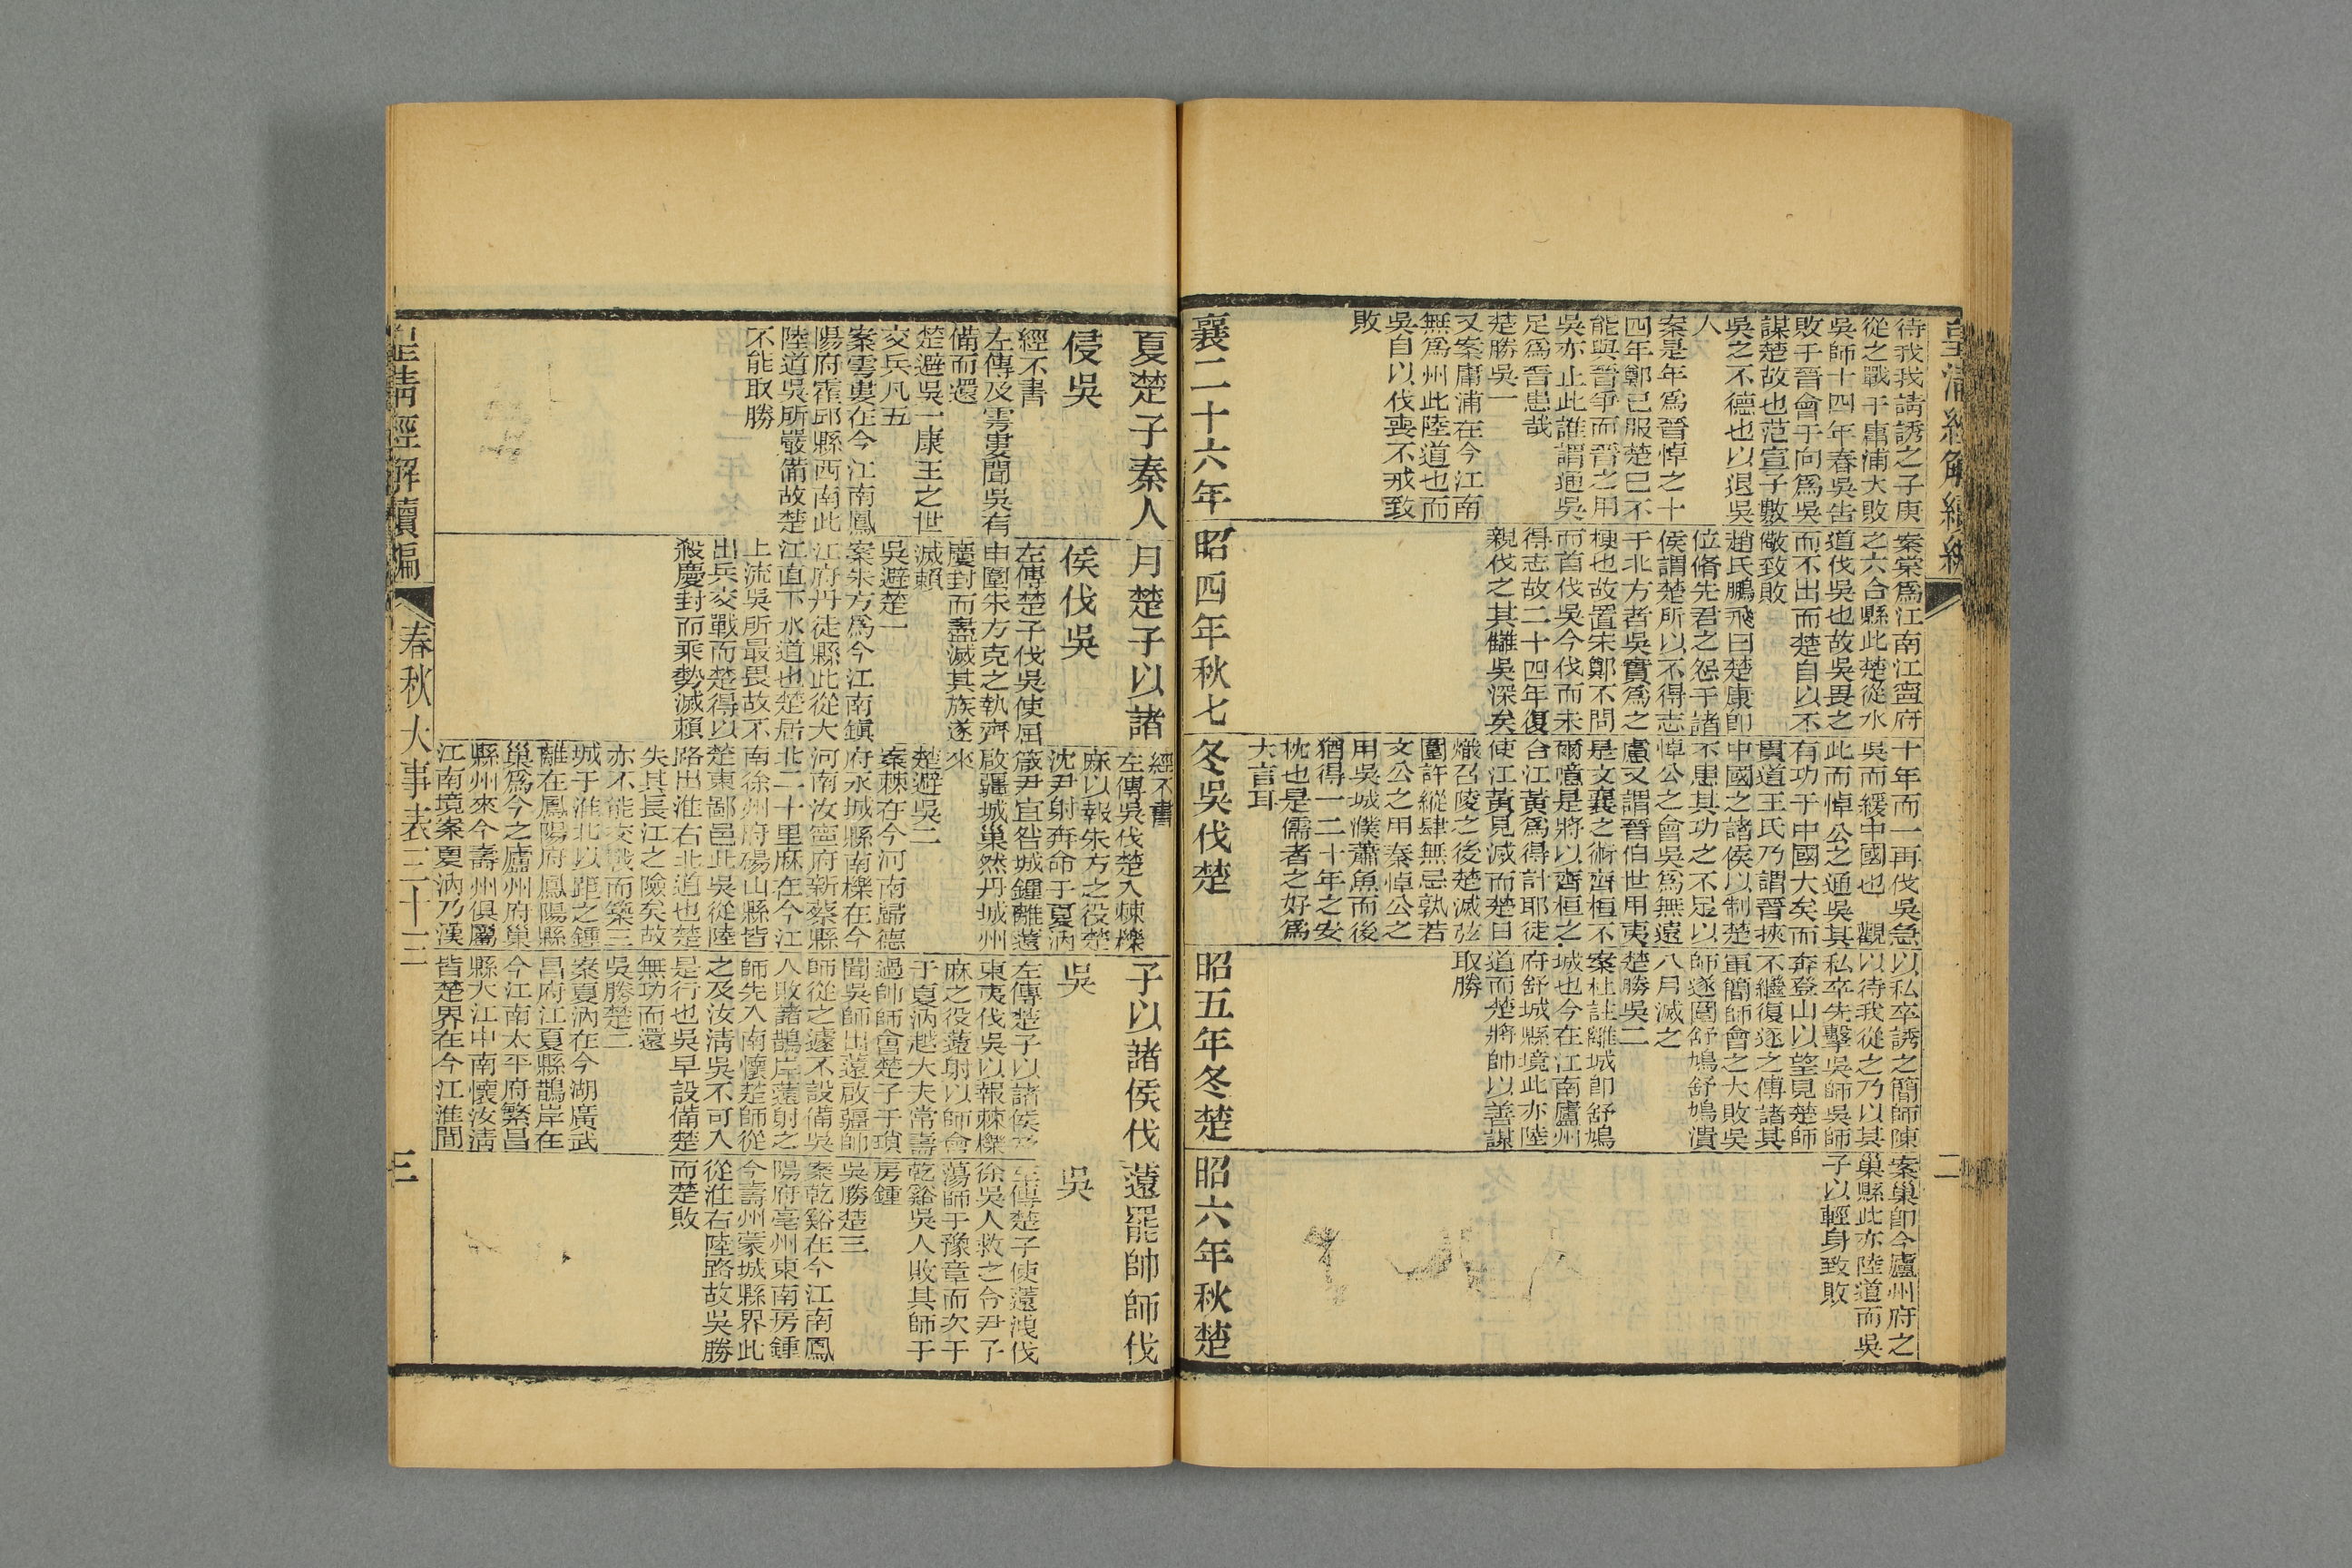 皇清經解續編
二
待我我請誘之子庚
從之戰于庸浦大敗
吳師十四年春吳告
敗于晉會于向爲吳
謀楚故也范宣子數
吳之不德也以退吳
人
案是年爲晉悼之十
四年鄭已服楚已不
能與晉爭而晉之用
吳亦止此誰謂通吳
足爲晉患哉
楚勝吳一
又案庸浦在今江南
無爲州此陸道也而
吳自以伐喪不戒致
敗
襄二十六年
案棠爲江南江寧府
之六合縣此楚從水
道伐吳也故吳畏之
而不出而楚自以不
儆致敗
趙氏鵬飛曰楚康卽
位脩先君之怨于諸
侯謂楚所以不得志
于北方者吳實爲之
梗也故置宋鄭不問
而首伐吳今伐而未
得志故二十四年復
親伐之其讎吳深矣
昭四年秋七
十年而一再伐吳急
吳而緩中國也 觀
此而悼公之通吳其
有功于中國大矣而
貫道王氏乃謂晉挾
中國之諸侯以制楚
不患其功之不足以
悼公之會吳爲無遠
慮又謂晉伯世用夷
是文襄之術齊桓不
爾噫是將以齊桓之
台江黃爲得計耶徒
使江黃見滅而楚日
熾召陵之後楚滅弦
圍許縱肆無忌孰若
文公之用秦悼公之
用吳城濮蕭魚而後
猶得一二十年之安
枕也是儒者之好爲
大言耳
冬吳伐楚
以私卒誘之簡師陳
以待我從之乃以其
私卒先擊吳師吳師
奔登山以望見楚師
不繼復逐之傅諸其
軍簡師會之大敗吳
師遂圍舒鳩舒鳩潰
八月滅之
楚勝吳二
案杜註離城卽舒鳩
城也今在江南廬州
府舒城縣境此亦陸
道而楚將帥以善謀
取勝
昭五年冬楚
案巢卽今廬州府之
巢縣此亦陸道而吳
子以輕身致敗
昭六年秋楚
夏楚子秦人
侵吳
經不書
左傳及雩婁聞吳有
備而還
楚避吳一康王之世
交兵凡五
案雩婁在今江南鳳
陽府霍邱縣西南此
陸道吳所嚴備故楚
不能取勝
月楚子以諸
侯伐吳
左傳楚子伐吳使屈
申圍朱方克之執齊
慶封而盡滅其族遂
滅賴
吳避楚一
案朱方爲今江南鎭
江府丹徒縣此從大
江直下水道也楚居
上流吳所最畏故不
出兵交戰而楚得以
殺慶封而乘勢滅賴
經不書
左傳吳伐楚入棘櫟
麻以報朱方之役楚
沈尹射奔命于夏汭
箴尹宜咎城鍾離薳
啟彊城巢然丹城州
來
楚避吳二
案棘在今河南歸德
府永城縣南櫟在今
河南汝寧府新蔡縣
北二十里麻在今江
南徐州府碭山縣皆
楚東鄙邑此吳從陸
路出淮右北道也楚
失其長江之險矣故
亦不能交戰而築三
城于淮北以距之鍾
離在鳳陽府鳳陽縣
巢爲今之廬州府巢
縣州來今壽州俱屬
江南境案夏汭乃漢
子以諸侯伐
吳
左傳楚子以諸侯及
東夷伐吳以報棘櫟
麻之役薳射以師會
于夏汭越大夫常壽
過帥師會楚子于瑣
聞吳師出薳啟疆帥
師從之遽不設備吳
人敗諸鵲岸薳射之
師先入南懷楚師從
之及汝淸吳不可入
是行也吳早設備楚
無功而還
吳勝楚二
案夏汭在今湖廣武
昌府江夏縣鵲岸在
今江南太平府繁昌
縣大江中南懷汝淸
皆楚界在今江淮間
薳罷帥師伐
吳
左傳楚子使薳洩伐
徐吳人救之令尹子
蕩師于豫章而次于
乾谿吳人敗其師于
房鍾
吳勝楚三
案乾谿在今江南鳳
陽府亳州東南房鍾
今壽州蒙城縣界此
從淮右陸路故吳勝
而楚敗
皇淸經解續編
春秋大事表三十三
三